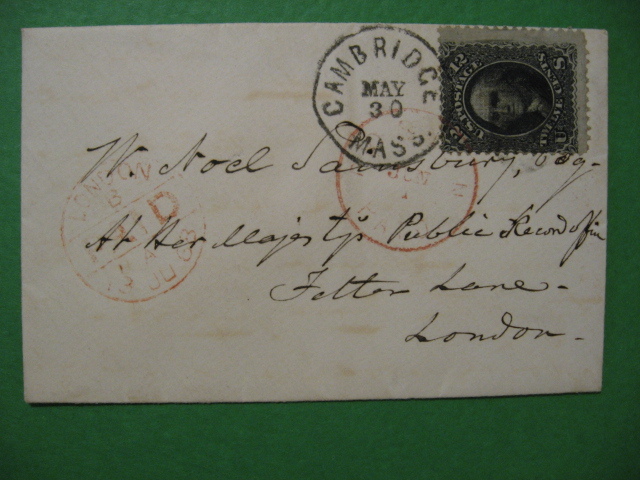 CAMBRIDGE
MAY
30
MASS.
12 12
U.S. POSTAGE
U S
W. Noel Sainsbury, Esq.
At Her Majesty's Public Record office
Fetter Lane -
London -
LONDON
PAID
JU 63
JUN